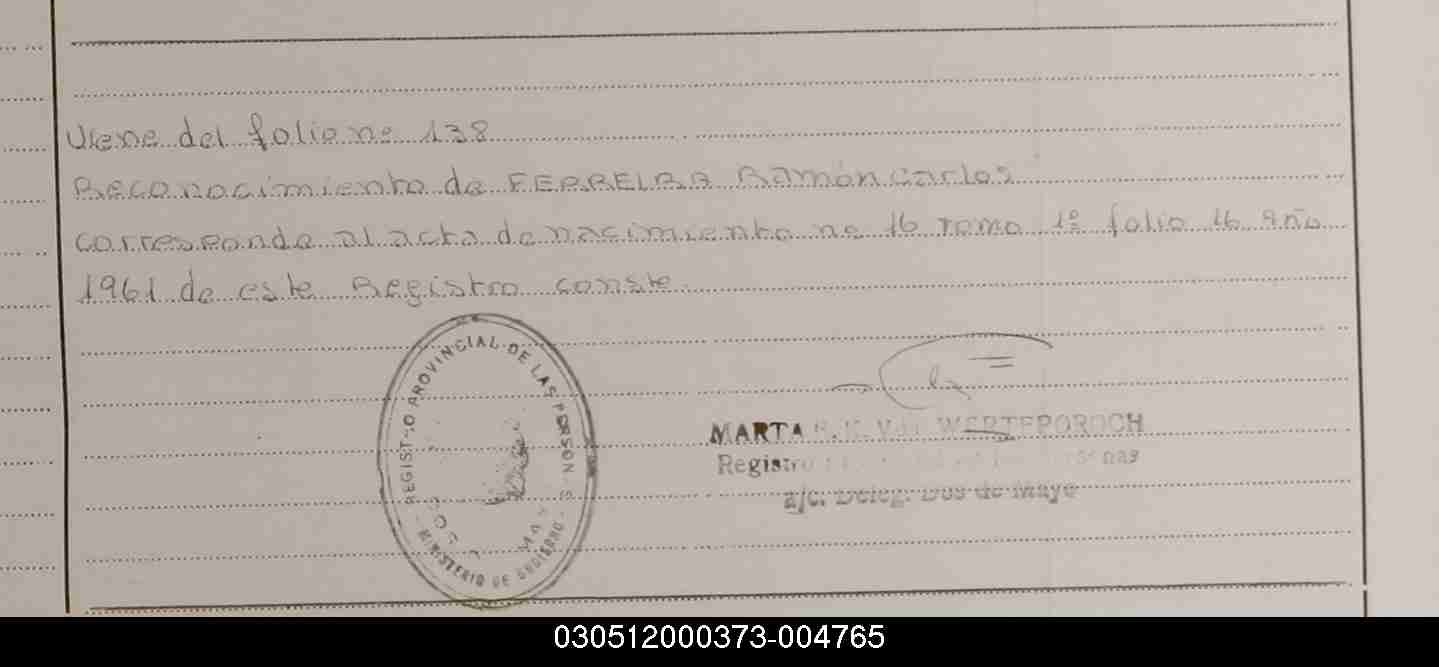 Viene del folio no 138
Reconocimiento de FERREIRA Ramón Carlos
corresponde al acta de nacimiento no 16 Tomo 1º folio 16 Año
1961 de este Registro conste.
REGISTRO PROVINCIAL DE LAS PERSONAS
MINISTERIO DE GOBIERNO
MARTA WERTEPOROCH
Registro de las Personas
a/c. Deleg. Dos de Mayo
030512000373-004765